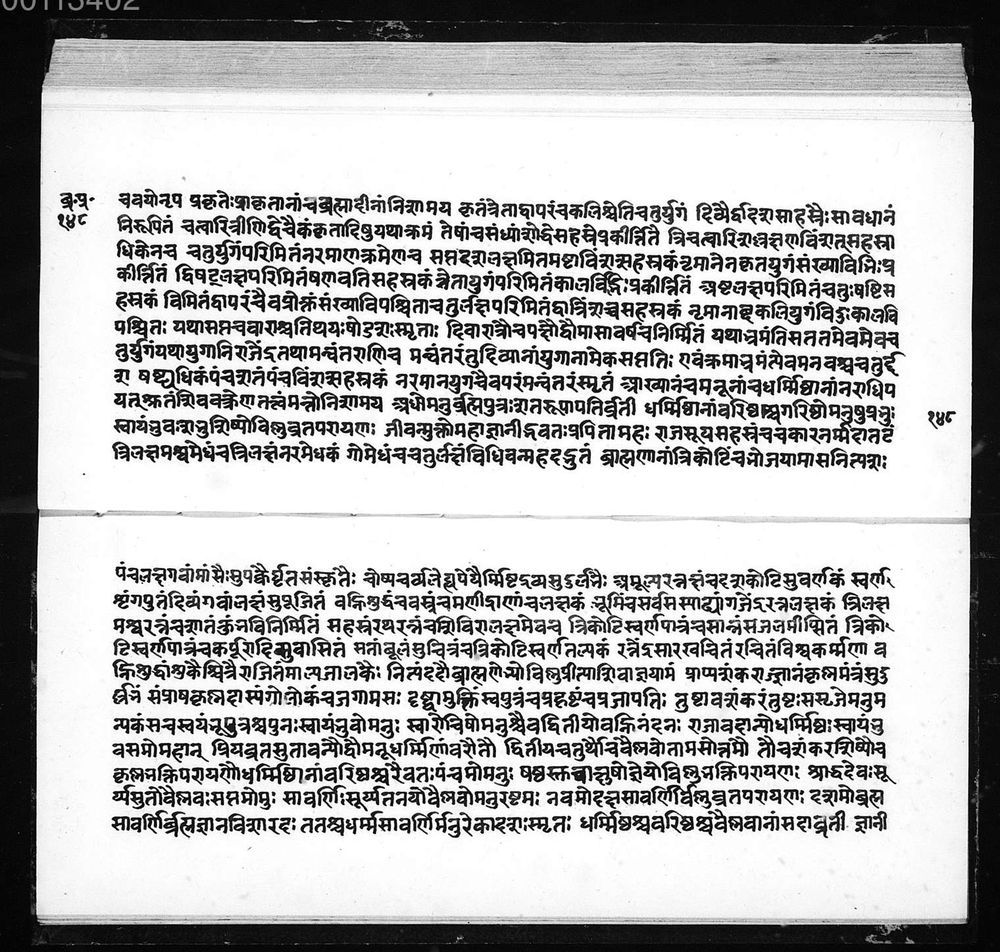 00113402
ब्र॰प्र॰
१४८
चवयोनृप प्रकृतेःप्राकृतानांचब्रह्मादीनांनिशामय कृतंत्रेताद्वापरंचकलिश्चेतिचतुर्युगं दिव्यैर्द्वादशसाहस्रैःसावधानं
निरूपितं चत्वारित्रीणिद्वेचैकंकृतादिषुयथाक्रमं तेषांचसंध्यांशोद्वेसहस्रेप्रकीर्त्तिते त्रिचत्वारिंशल्लक्षणविंशत्सहस्रा
धिकेनच चतुर्युगंपरिमितंनरमाणक्रमेणच सप्तदशलक्षमितमष्टाविंशत्सहस्रकं नृमानेनकृतयुगंसंख्याविद्भिःप्र
कीर्त्तितं द्विषट्लक्षपरिमितंषण्णवतिसहस्रकं त्रेतायुगंपरिमितंकालविद्भिःप्रकीर्त्तितं अष्टलक्षपरिमितंचतुःषष्टिस
हस्रकं विमितंद्वापरंचैवप्रोक्तंसंख्याविपश्चिता चतुर्लक्षपरिमितंद्वात्रिंशच्चसहस्रकं नृमानाब्दकलियुगंविदुःकालवि
पश्चितः यथासप्तचवाराश्चतिथयःषोडशःस्मृताः दिवारात्रौचपक्षौद्वौमासावर्षंचनिर्मितं यथाभ्रमंतिसततमेवमेवच
तुर्युगंयथायुगानिराजेंद्रतथामन्वंतराणिच मन्वंतरंतुदिव्यानांयुगानामेकसप्ततिः एवंक्रमाद्भ्रमंत्येवमनवश्चचतुर्द्द
श षष्ट्यधिकंपंचशतंपंचविंशत्सहस्रकं नरमानयुगंचैवपरंमन्वंतरंस्मृतं आख्यानंचमनूनांचधर्म्मिष्ठानांनराधिप
यत्श्रुतंशिववक्त्रेणतत्त्वंमत्तोनिशामय आद्योमनुर्ब्रह्मपुत्रःशतरूपापतिर्व्रती धर्म्मिष्ठानांवरिष्ठश्चगरिष्ठोमनुषुप्रभुः
स्वायंभुवःशंभुशिष्योविष्णुव्रतपरायणः जीवन्मुक्तोमहाज्ञानीभवतःप्रपितामहः राजसूयसहस्रंचचकारनर्म्मदातटे
त्रिलक्षमश्वमेधंचत्रिलक्षंनरमेधकं गोमेधंचचतुर्लक्षंविधिवन्महदद्भुतं ब्राह्मणानांत्रिकोटिंचभोजयामासनित्यशः
१४८
पंचलक्षगवांमांसैःसुपक्वैर्घृतसंस्कृतैः चोष्यचर्व्यलेह्यपेयैर्म्मिष्टद्रव्यसुदुर्लभैः अमूल्यरत्नलक्षंचदशकोटिसुवर्णकं स्वर्ण
शृंगयुतंदिव्यंगवांलक्षंसुपूजितं वह्निशुद्धंचवस्त्रंचमणींद्राणांचलक्षकं भूमिंचसर्वसस्याढ्यांगजेंद्ररत्नलक्षकं त्रिलक्ष
मश्वरत्नंचशातकुंभविनिर्म्मितं सहस्ररथरत्नंचशिविरालक्षमेवच त्रिकोटिस्वर्णपात्रंचसान्नंसजलमीप्सितं त्रिको
टिस्वर्णपात्रंचकर्पूरादिसुवासितं तांबूलंसुचित्रंचत्रिकोटिस्वर्णतल्पकं रत्नेंद्रसारखचितंरचितंविश्वकर्म्मणा व
ह्निशुद्धांशुकैश्चित्रैराजितंमाल्यजालकैः नित्यंददौब्राह्मणेभ्योविष्णुप्रीत्याशिवाज्ञया संप्राप्यशंकराज्ज्ञानंकृष्णमंत्रंसुदु
र्लभं संप्राप्यकृष्णदास्यंगोलोकंचजगामसः दृष्ट्वामुक्तिंस्वपुत्रंचप्रहृष्टंचप्रजापतिः तुष्टावशंकरंतुष्टःससृजेमनुम
न्यकंसचस्वयंभूपुत्रश्चपुनःस्वायंभुवोमनुः स्वारोचिषोमनुश्चैवद्वितीयोवह्निनंदनः राजावदान्योधर्म्मिष्ठःस्वायंभु
वसमोमहान् प्रियव्रतसुतावन्यौद्वौमनूधर्म्मिणांवरौतौ द्वितीयचतुर्थौचवैष्णवौतामसोत्तमौ तौचशंकरशिष्यौच
कृष्णभक्तिपरायणौधर्म्मिष्ठानांवरिष्ठश्चरैवतःपंचमोमनुः षष्ठस्तचाक्षुषोज्ञेयोविष्णुभक्तिपरायणः श्राद्धदेवःसू
र्य्यसुतोवैष्णवःसप्तमोमनुः सावर्णिःसूर्य्यतनयोवैष्णवोमनुरष्टमः नवमोदक्षसावर्णिर्विष्णुव्रतपरायणः दशमोब्रह्म
सावर्णिर्ब्रह्मज्ञानविशारदः ततश्चधर्म्मसावर्णिर्मनुरेकादशःस्मृतः धर्म्मिष्ठश्चवरिष्ठश्चवैष्णवानांसदाव्रती ज्ञानी